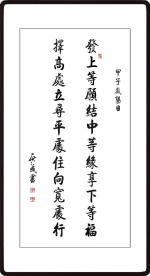 甲子歲陽日
發上等願結中等緣享下等福
擇高處立尋平處住向寬處行
武書